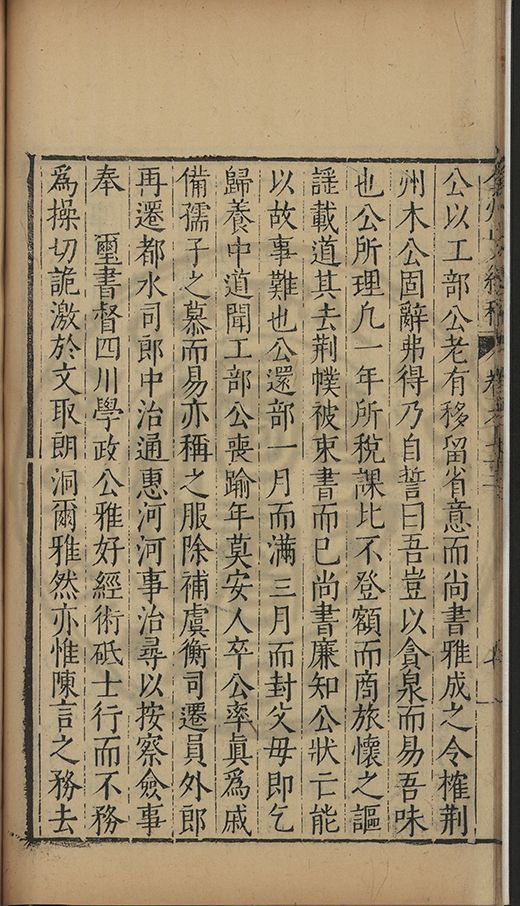 公以工部公老有移留省意而尚書雅成之令榷荆
州木公固辭弗得乃自誓曰吾豈以貪泉而易吾味
也公所理凢一年所稅課比不登額而商旅懷之謳
謡載道其去荆幞被束書而已尚書廉知公狀亡能
以故事難也公還部一月而滿三月而封父毋即乞
歸養中道聞工部公喪踰年莫安人卒公率眞爲戚
備孺子之慕而易亦稱之服除補虞衡司遷員外郎
再遷都水司郎中治通惠河河事治尋以按察僉事
奉 璽書督四川學政公雅好經術砥士行而不務
爲操切詭激於文取朗洞爾雅然亦惟陳言之務去